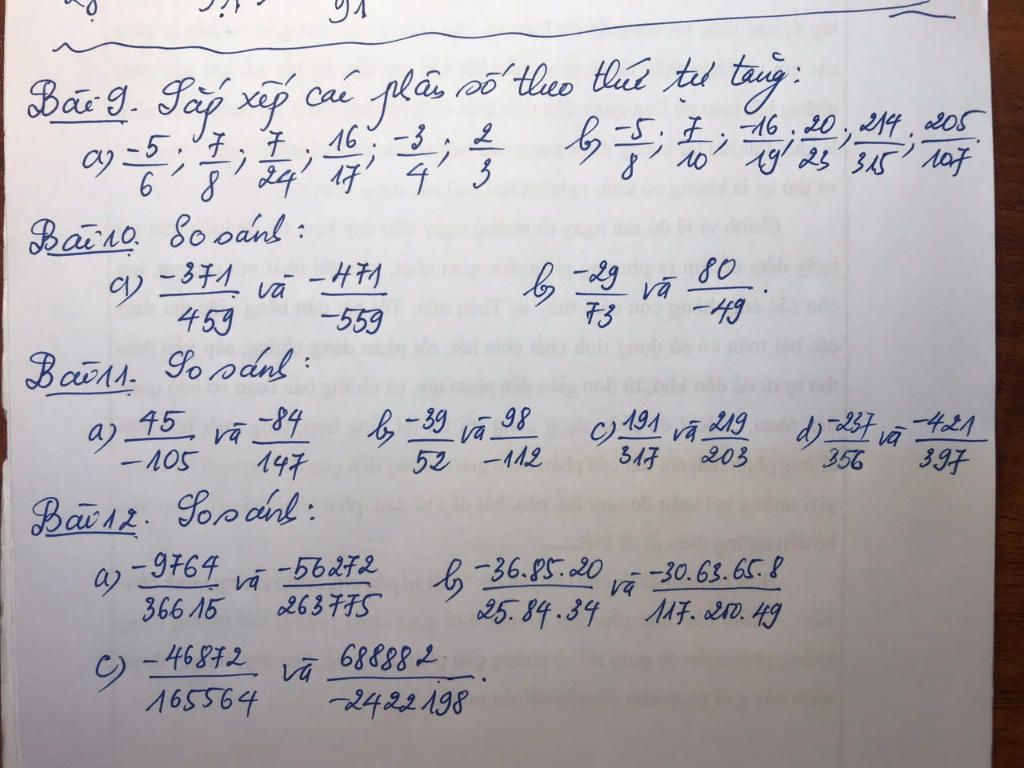 91
Bài 9. Sắp xếp các phân số theo thứ tự tăng.
a) -5/6 ; 7/8 ; 7/24 ; 16/17 ; -3/4 ; 2/3 b) -5/8 ; 7/10 ; -16/19 ; 20/23 ; 214/315 ; 205/107.
Bài 10. So sánh :
a) -371/459 và -471/-559 b) -29/73 và 80/-49.
Bài 11. So sánh :
a) 45/-105 và -84/147 b) -39/52 và 98/-112 c) 191/317 và 219/203 d) -237/356 và -421/397
Bài 12. So sánh :
a) -9764/36615 và -56272/263775 b) -36.85.20/25.84.34 và -30.63.65.8/117.200.49
c) -46872/165564 và 688882/-2422198.